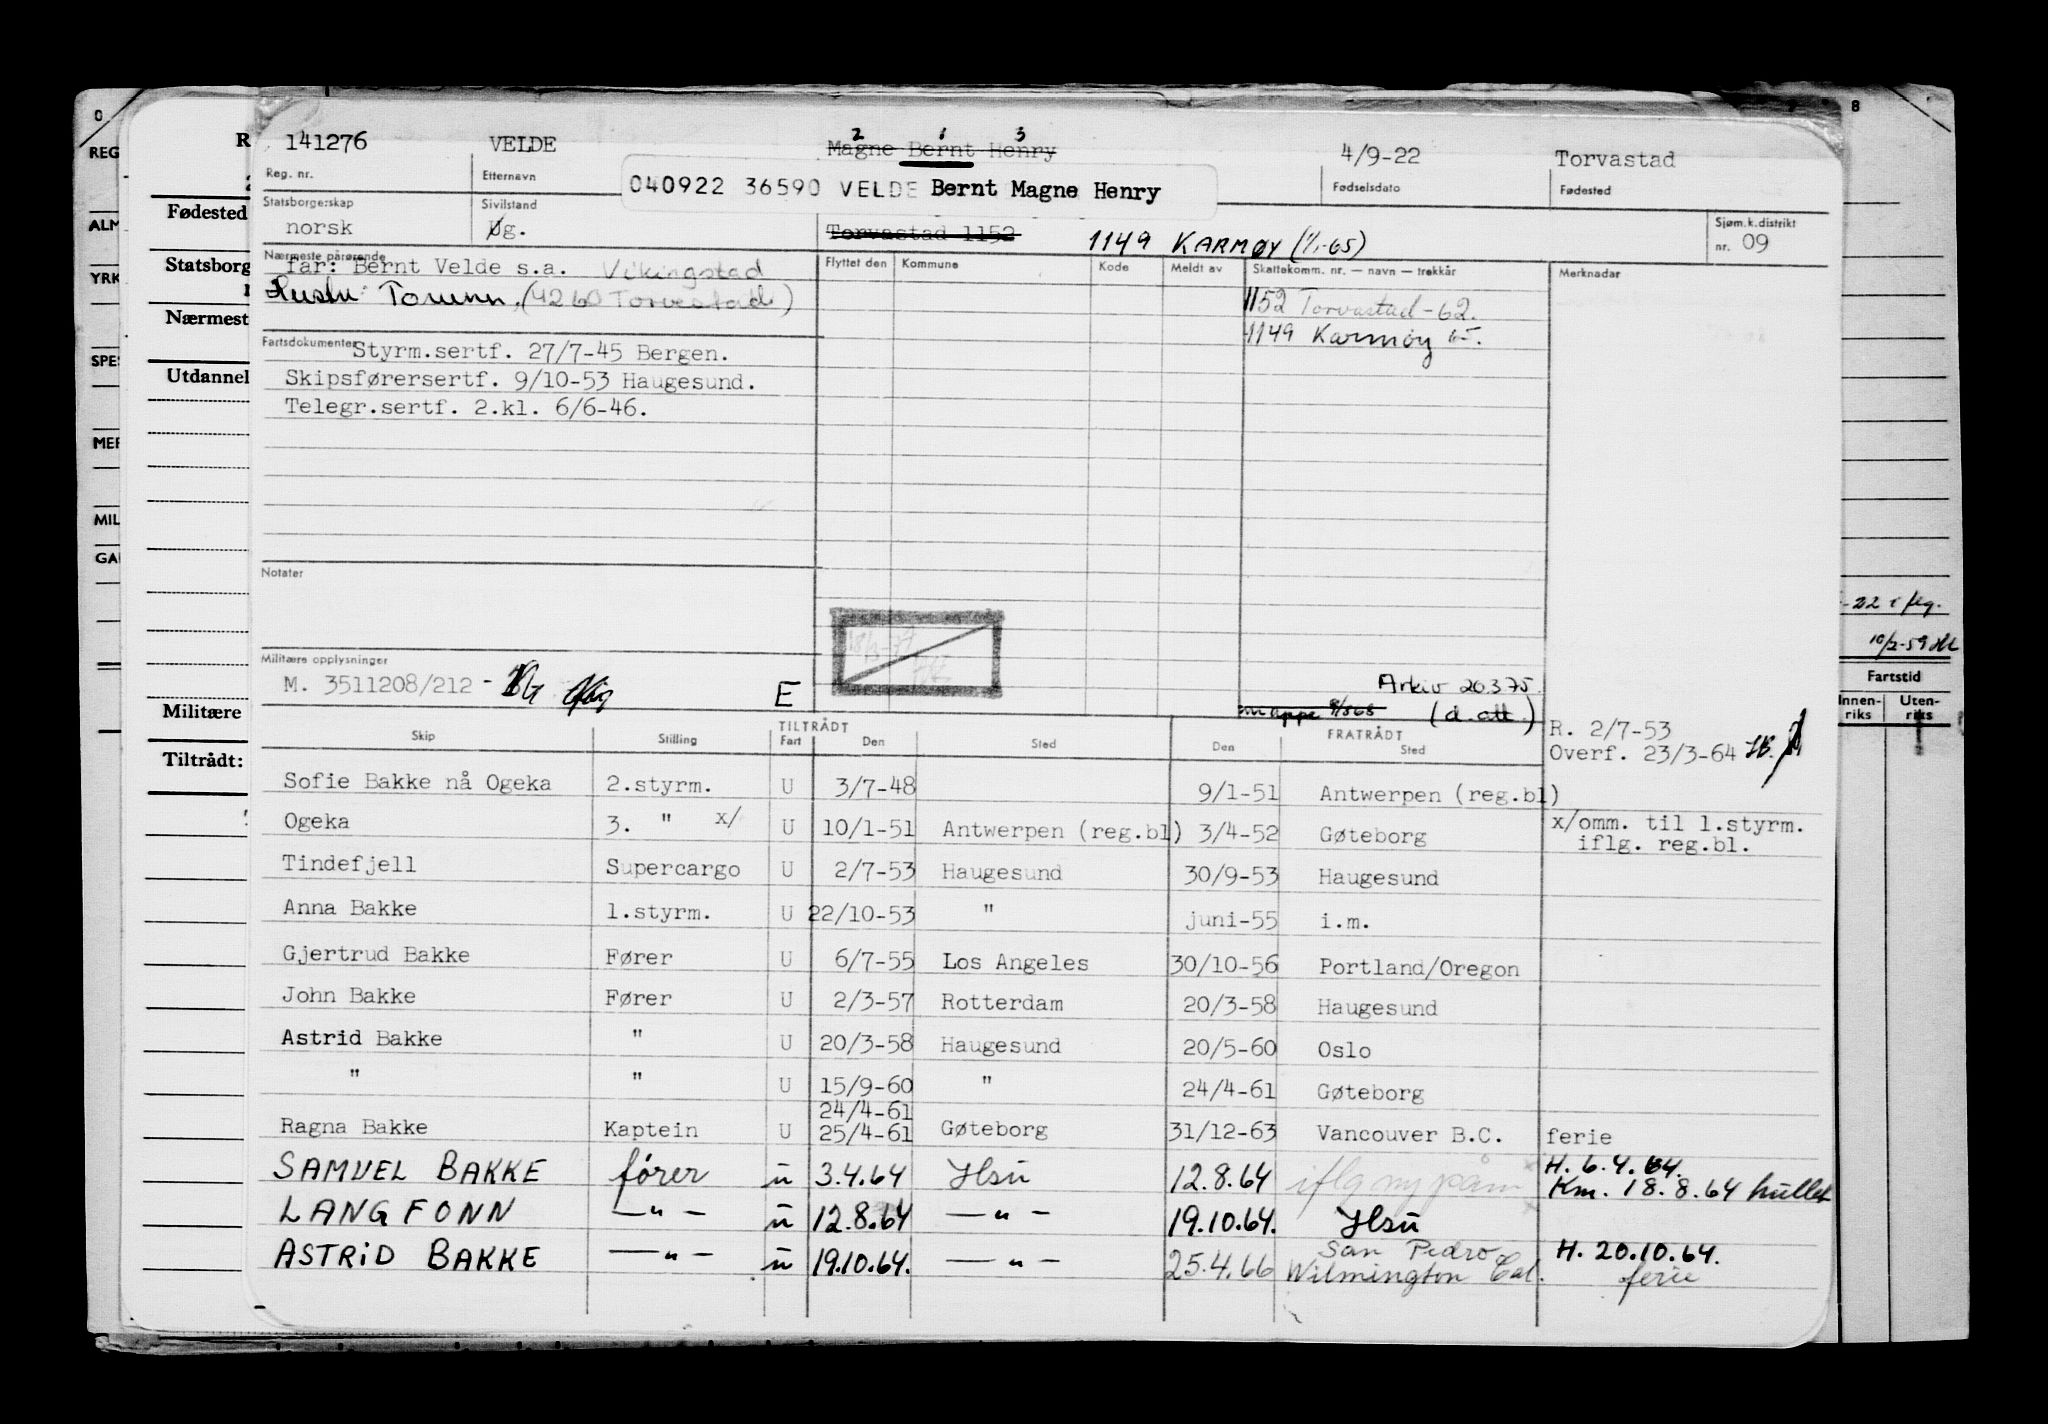 O
8
REG
R
141276 VELDE Magne Bernt Henry 4/9-22 Torvastad
2 1 3
Reg. nr. Etternavn Fødselsdato Fødested
040922 36590 VELDE Bernt Magne Henry
Fødested
Statsborgerskap Sivilstand Sjøm.k.distrikt
norsk Ug. Torvastad 1152 1149 KARMØY (1/1-65) nr. 09
ALM
Statsborg
Nærmeste pårørende Flyttet den Kommune Kode Meldt av Skattekomm. nr. — navn — trekkår Merknader
far: Bernt Velde s.a. Vikingstad
YRK
Hustru: Torunn, (4260 Torvestad) 1152 Torvastad-62.
Nærmest
1149 Karmøy 65.
Fartsdokumenter
Styrm.sertf. 27/7-45 Bergen.
SPES
Utdannel
Skipsførersertf. 9/10-53 Haugesund.
Telegr.sertf. 2.kl. 6/6-46.
MER
MIL
GA
Notater
-22 i flg.
10/2-59
Militære opplysninger
M. 3511208/212 - E Arkiv 20375.
mappe 8/868 (d.att.)
Fartstid
Innen-riks Uten-riks
Militære
Tiltrådt:
Skip Stilling TILTRÅDT FRATRÅDT R. 2/7-53
Fart Den Sted Den Sted Overf. 23/3-64
Sofie Bakke nå Ogeka 2.styrm. U 3/7-48 9/1-51 Antwerpen (reg.bl)
Ogeka 3. " x/ U 10/1-51 Antwerpen (reg.bl) 3/4-52 Gøteborg x/omm. til 1.styrm.
iflg. reg.bl.
Tindefjell Supercargo U 2/7-53 Haugesund 30/9-53 Haugesund
Anna Bakke 1.styrm. U 22/10-53 " juni-55 i.m.
Gjertrud Bakke Fører U 6/7-55 Los Angeles 30/10-56 Portland/Oregon
John Bakke Fører U 2/3-57 Rotterdam 20/3-58 Haugesund
Astrid Bakke " U 20/3-58 Haugesund 20/5-60 Oslo
" " U 15/9-60 " 24/4-61 Gøteborg
24/4-61
Ragna Bakke Kaptein U 25/4-61 Gøteborg 31/12-63 Vancouver B.C. ferie
SAMUEL BAKKE fører u 3.4.64 Hsu 12.8.64 iflg ny påm H. 6.4.64.
Km. 18.8.64 hullet
LANGFONN —"— u 12.8.64 —"— 19.10.64. Hsu
ASTRID BAKKE —"— u 19.10.64. —"— 25.4.66 San Pedro H. 20.10.64.
Wilmington Cal. ferie